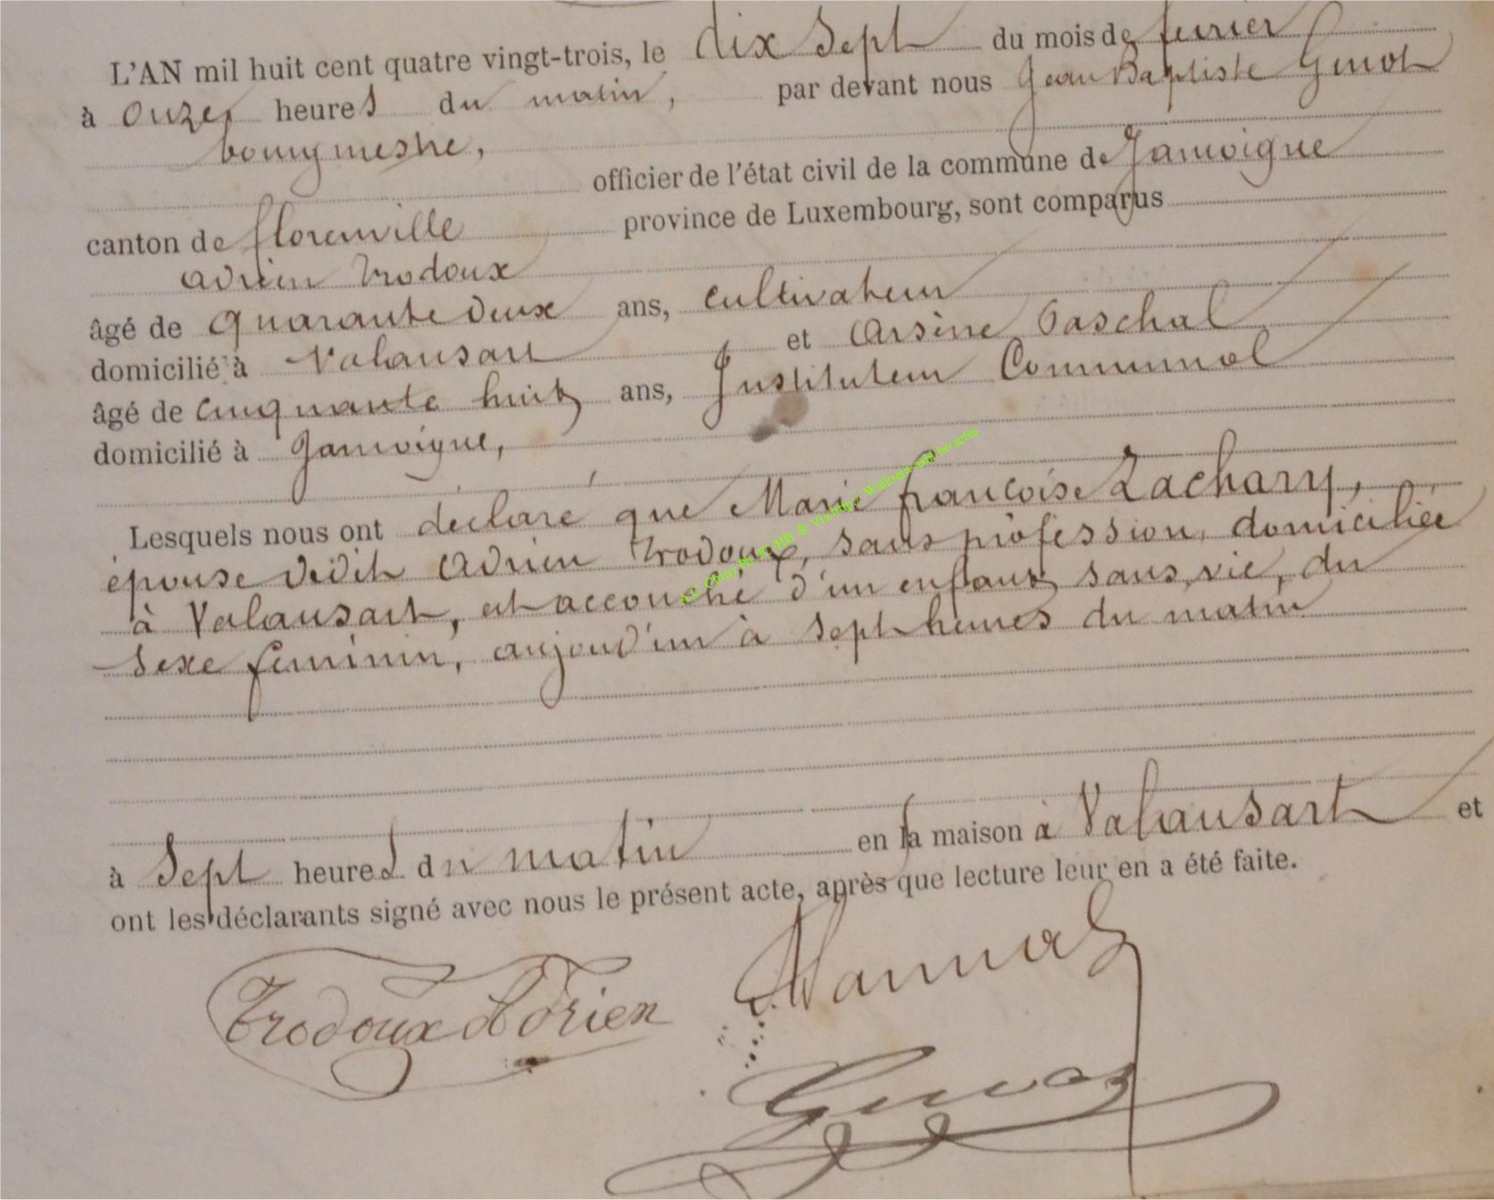 L'AN mil huit cent quatre vingt-trois, le dix sept du mois de fevrier
à onze heures du matin, par devant nous Jean Baptiste Guiot
bourgmestre,
officier de l'état civil de la commune de Jamoigne
canton de florenville province de Luxembourg, sont comparus
Adrien Trodoux
âgé de quarante deux ans, cultivateur
domicilié à Valansart et Arsène Paschal
âgé de cinquante huit ans, Instituteur Communal
domicilié à Jamoigne,
Lesquels nous ont déclaré que Marie françoise Zachary,
épouse dudit Adrien Trodoux, sans profession, domiciliée
à Valansart, est accouché d'un enfant sans vie, du
sexe feminin, aujourd'hui à sept heures du matin
à Sept heures du matin en sa maison à Valansart et
ont les déclarants signé avec nous le présent acte, après que lecture leur en a été faite.
Trodoux Adrien